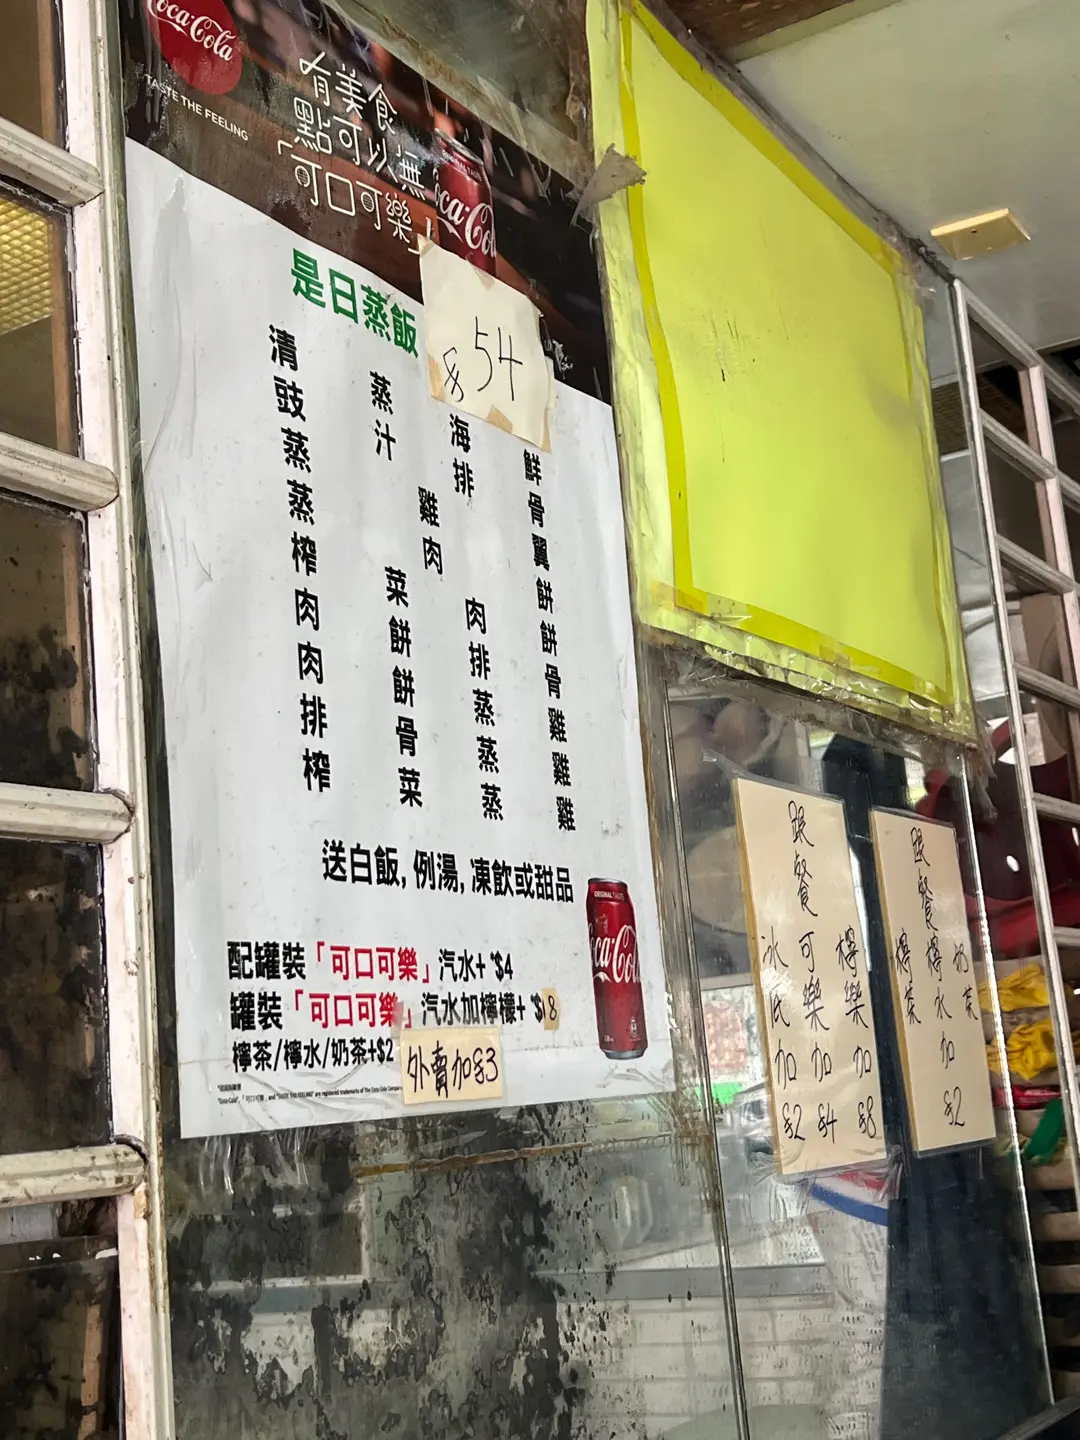 Coca-Cola
TASTE THE FEELING
有美食
點可以無
「可口可樂」
ORIGINAL TASTE
Coca-Cola
是日蒸飯
$54
清蒸海鮮
豉汁排骨
蒸雞翼
蒸肉餅
榨菜肉餅
肉餅排骨
肉餅蒸雞
排骨蒸雞
榨菜蒸雞
送白飯, 例湯, 凍飲或甜品
配罐裝「可口可樂」汽水+ $4
罐裝「可口可樂」汽水加檸檬+ $8
檸茶/檸水/奶茶+$2
外賣加$3
ORIGINAL TASTE
Coca-Cola
跟餐
檸樂加$8
可樂加$4
冰底加$2
跟餐
奶茶
檸水
檸茶
加$2